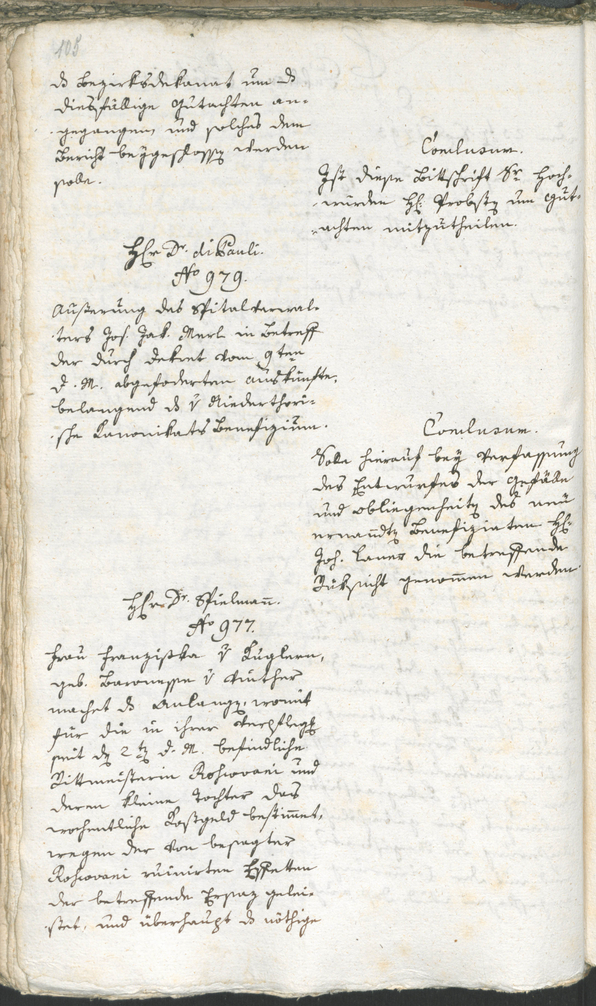 105
ds Bezirksdekanat um ds
diesfällige Gutachten an-
gegangen, und solches dem
Bericht beygeschlossen werden
solle.
Conclusum.
Ist diese Bittschrift Sr. Hoch-
würden H: Probsten um Gut-
achten mitzutheilen.
HEr Dr. di Pauli.
No 979.
Äußerung des Spitalverwal-
ters Jos. Jak. Merl in Betreff
der durch Dekret vom 9ten
d. M. abgeforderten Auskünfte,
belangend ds v Niederthori-
sche Kanonikats Benefizium.
Conclusum.
Solle hierauf bey Verfassung
des Entwurfes der Gefälle
und Obliegenheiten des neu
ernannten Benefiziaten H:
Joh. Laner die betreffende
Rüksicht genommen werden.
HEr Dr. Spielmann.
No 977.
Frau Franziska v Kuglern,
geb. Baronesse v
machet ds Anlangen, womit
für die in ihrer Verpflegg
seit den 2ten d. M. befindliche
Rittmeisterin und
deren kleine Tochter das
wochentliche Kostgeld bestimmet,
wegen der von besagter
ruinirten Effekten
der betreffende Ersaz gelei-
stet, und überhaupt ds nöthige